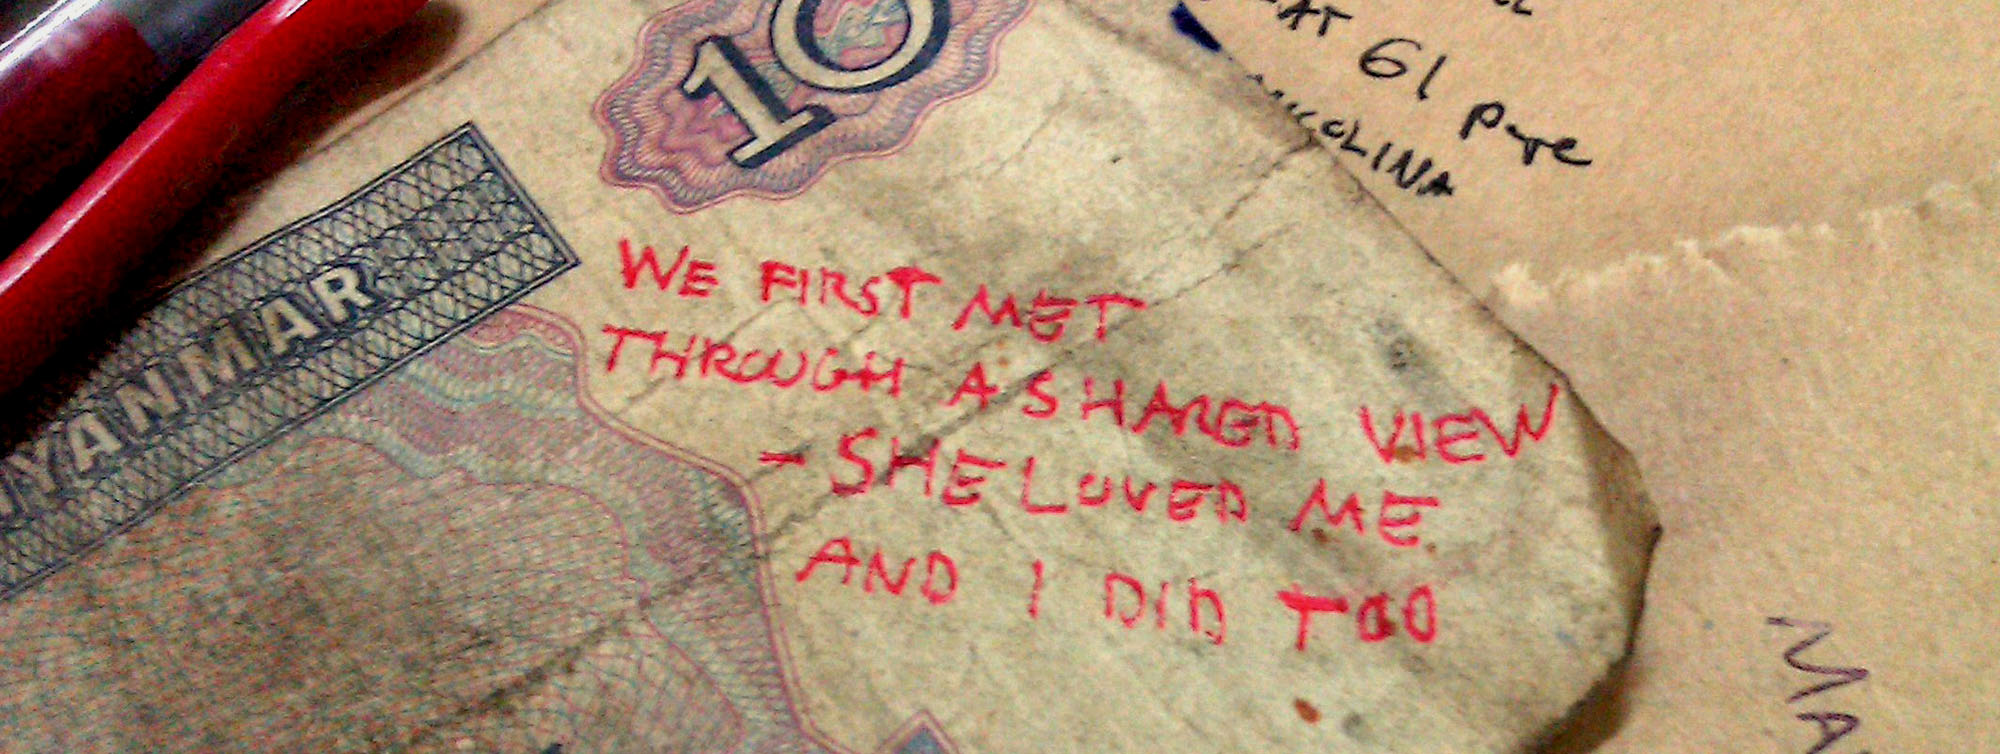 10
MYANMAR
WE FIRST MET
THROUGH A SHARED VIEW
- SHE LOVED ME
AND I DID TOO
61
MA